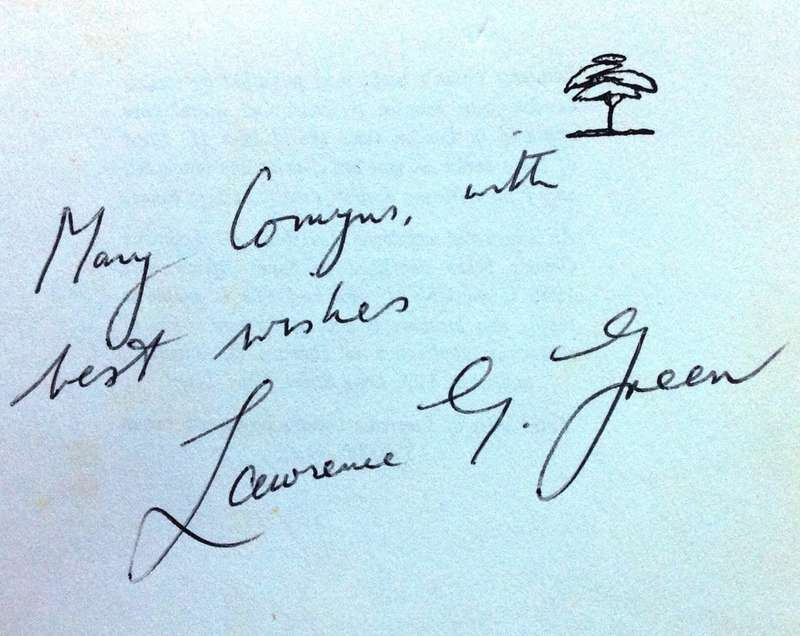 Mary Comyns, with
best wishes
Lawrence G. Green